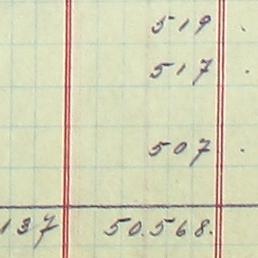 519
517
507
137 50.568.